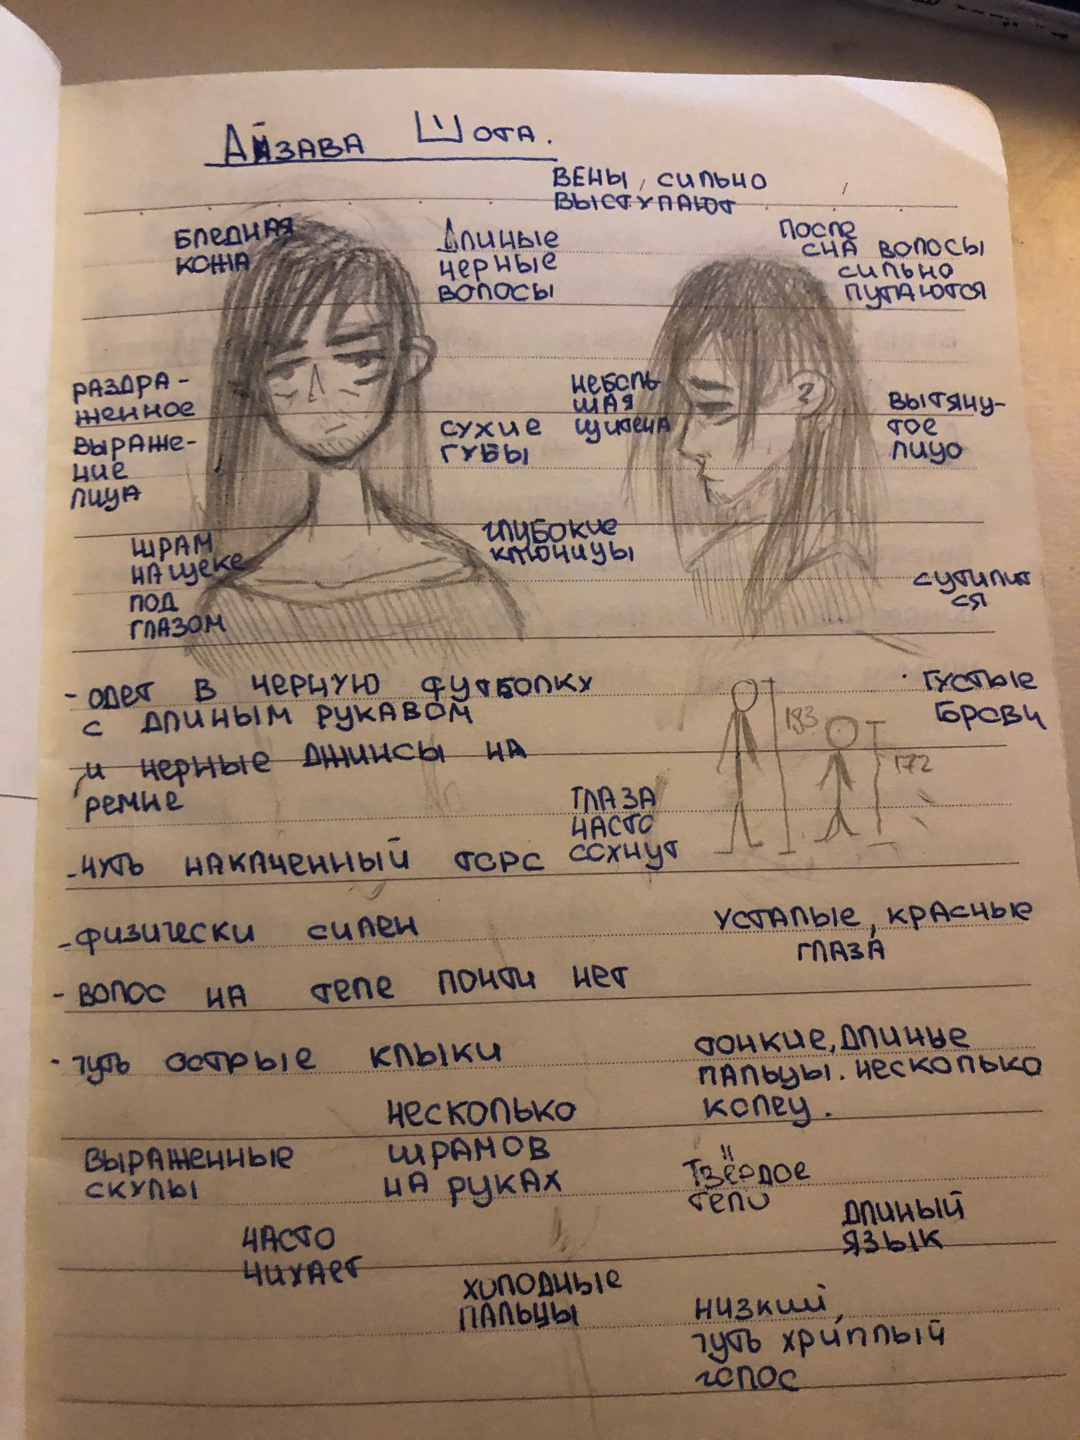 Айзава Шота.
вены, сильно
выступают
бледная
кожа
Длиные
черные
волосы
после
сна волосы
сильно
путаются
раздра-
женное
выраже-
ние
лица
сухие
губы
неболь-
шая
щитена
вытяну-
тое
лицо
шрам
на щеке
под
глазом
глубокие
ключицы
сутулит
ся
- одет в черную футболку
с длиным рукавом
и черные джинсы на
ремне
183
172
· густые
брови
глаза
часто
сохнут
- чуть накаченный торс
- физически силен
усталые, красные
глаза
- волос на теле почти нет
- чуть острые клыки
тонкие, длиные
пальцы. несколько
колец.
несколько
шрамов
на руках
выраженные
скулы
твёрдое
тело
длиный
язык
часто
чихает
холодные
пальцы
низкий,
чуть хриплый
голос